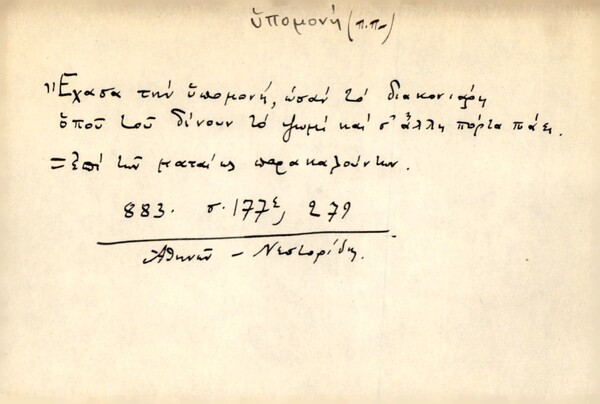 ὑπομονή (π.π.)
"Έχασα τήν ὑπομονή, ὡσάν τό διακονιάρη
ὅπού τοῦ δίνουν τό ψωμί καί σ' ἄλλη πόρτα πάει.
= ἐπί τῶν ματαίως παρακαλούντων.
883. σ. 177ε, 279
Ἀθηνῶν - Νεστορίδης.